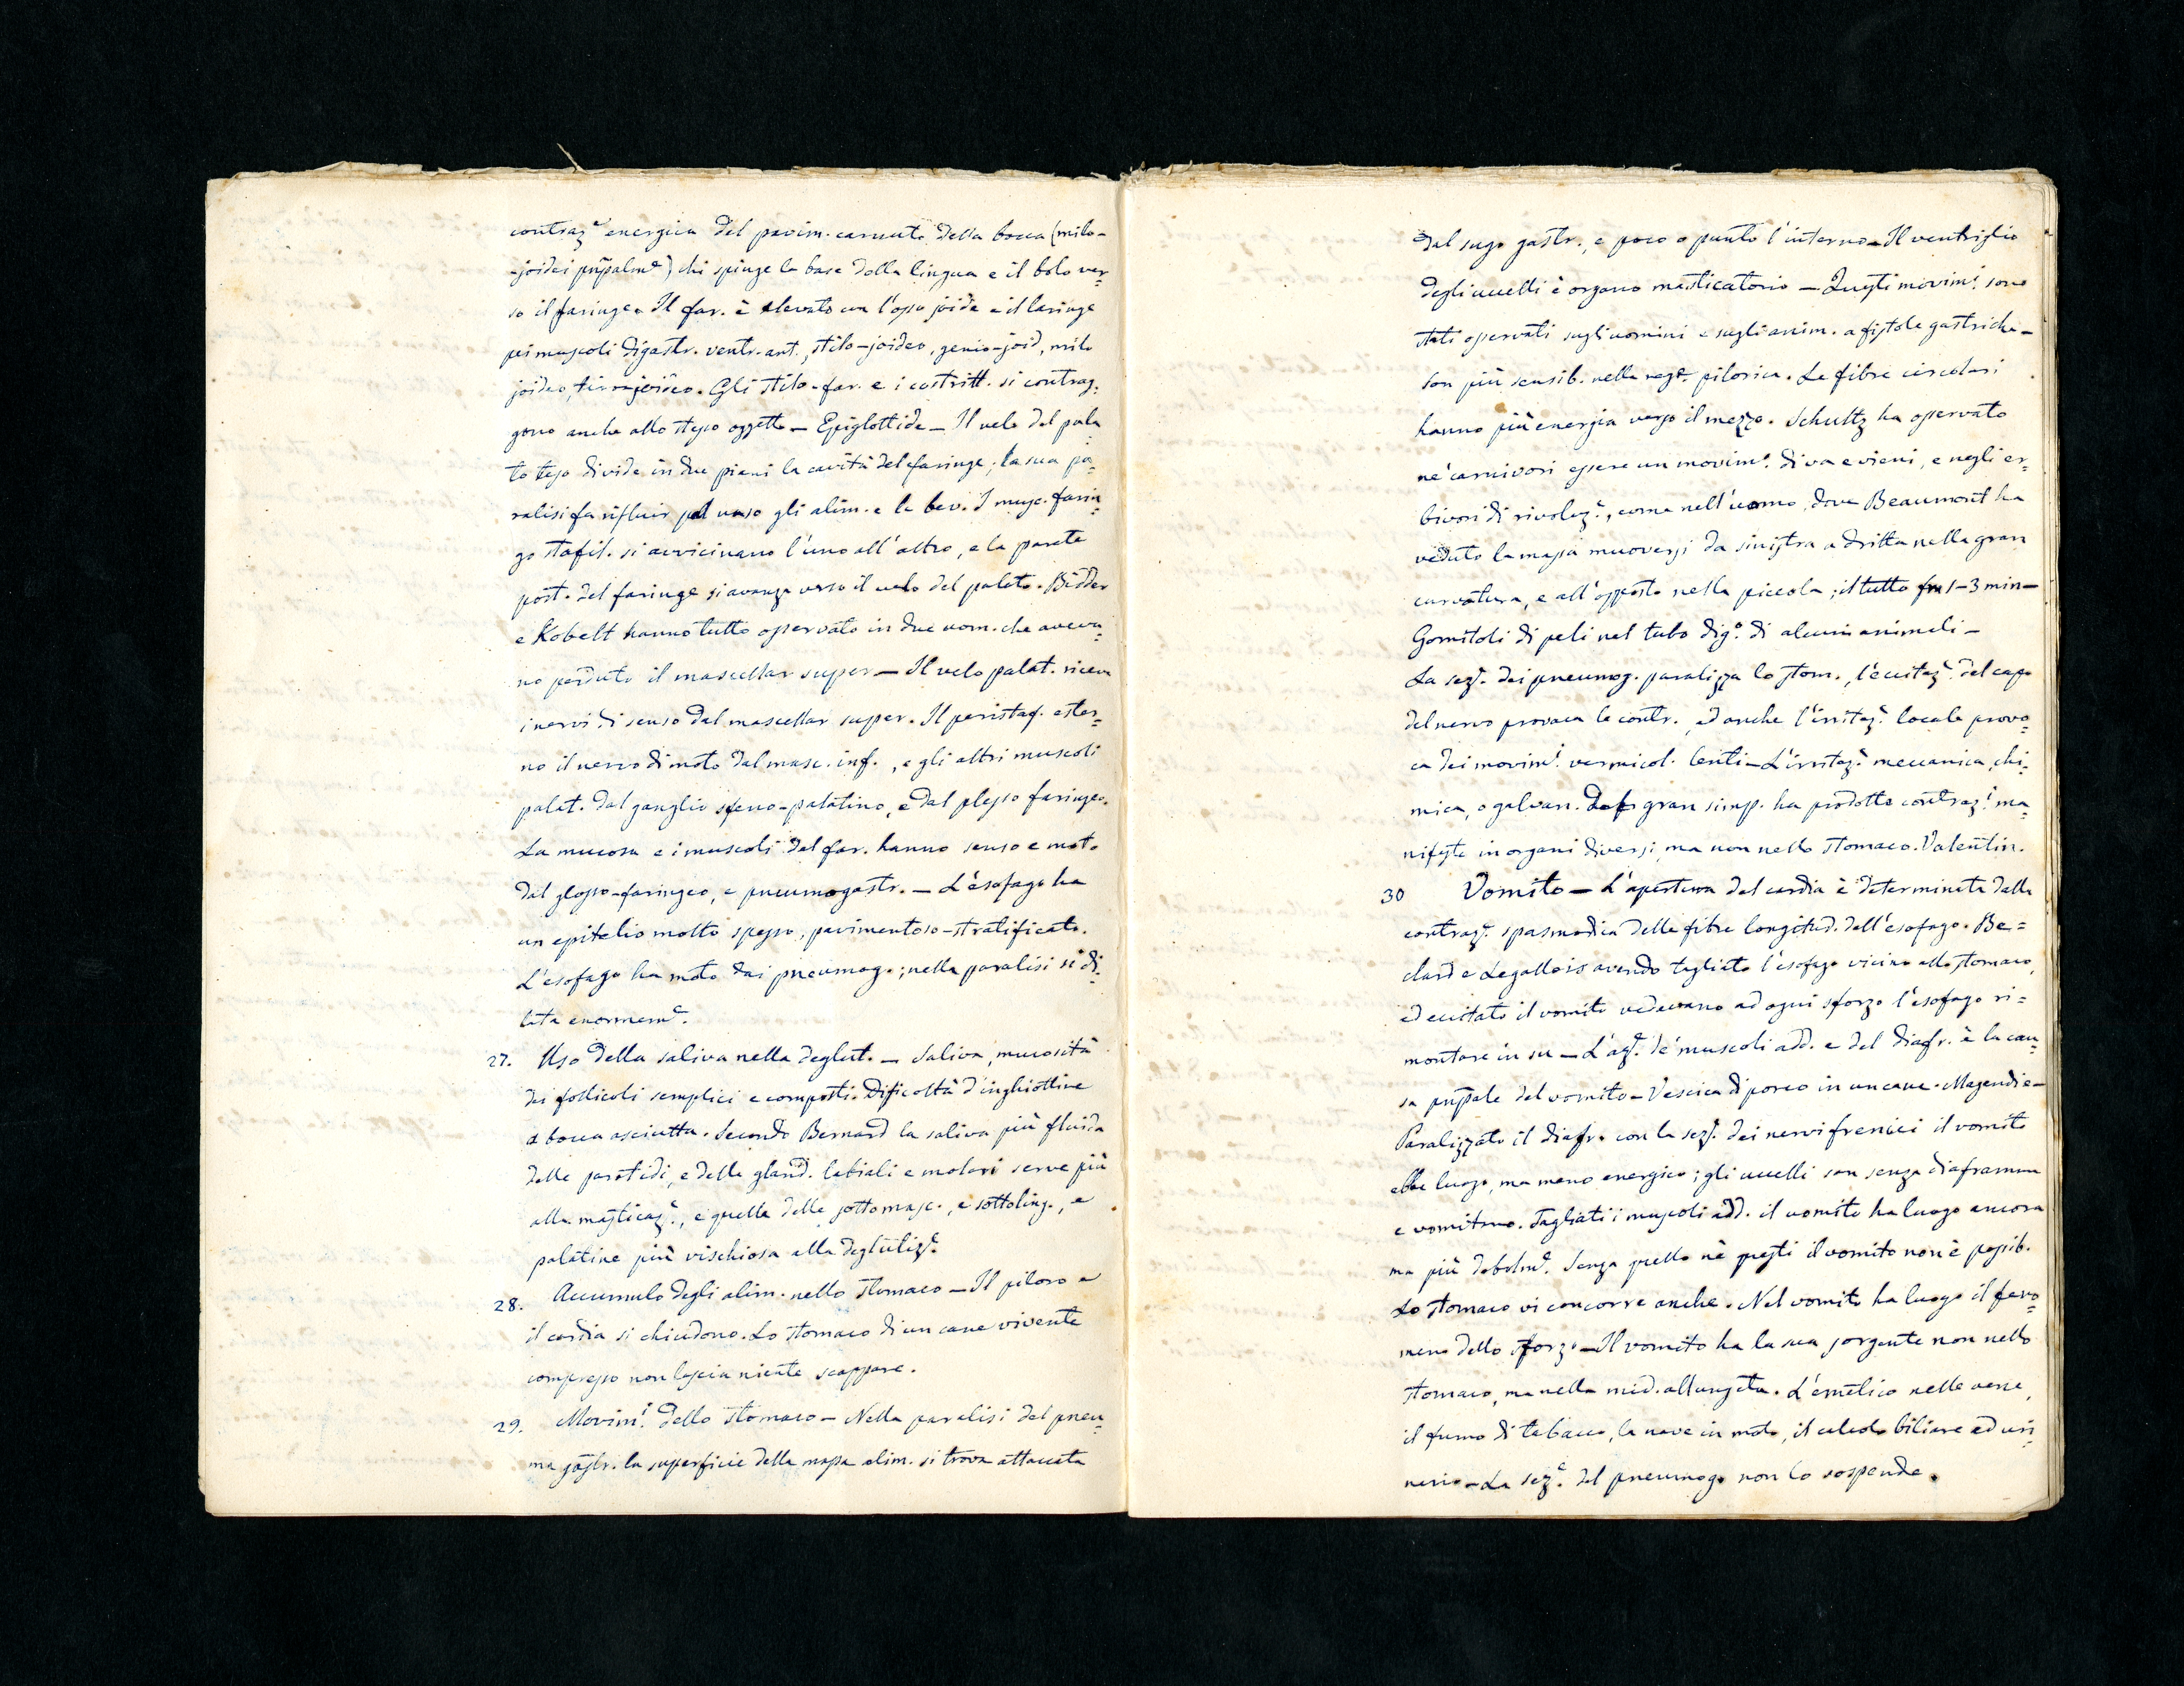 contraz.e energica del pavim. carnuto della bocca (milo-
-joidei pnpalme) chi spinge la base dalla lingua e il bolo ver=
so il faringe. Il far. è elevato con l'osso joide e il laringe
pei muscoli digastr. ventr. ant., stilo-joideo, genio-joid, milo
joideo, tiro-joideo. Gli stilo-far. e i costritt. si contrag=
gono anche allo stesso oggetto — Epiglottide — Il velo del pala
to teso divide in due piani la cavità del faringe; la sua pa=
ralisi fa rifluir pel naso gli alim. e le bev. I musc. farin=
go stafil. si avvicinano l'uno all'altro, e la parete
post. del faringe si avanza verso il velo del palato. Bidder
e Kobelt hanno tutto osservato in due uom. che aveva=
no perduto il mascellar super — Il velo palat. riceve
i nervi di senso dal mascellar super. Il peristaf. ester=
no il nervo di moto dal masc. inf., e gli altri muscoli
palat. dal ganglio sfeno-palatino, e dal plesso faringeo.
La mucosa e i muscoli del far. hanno senso e moto
dal glosso-faringeo, e pneumogastr. — L'esofago ha
un epitelio molto spesso, pavimentoso-stratificato.
L'esofago ha moto dai pneumog.; nella paralisi si di=
lata enormeme.
27. Uso della saliva nella deglut. — Saliva, mucosità
dei follicoli semplici e composti. Dificoltà d'inghiottire
a bocca asciutta. Secondo Bernard la saliva più fluida
delle parotidi, e delle gland. labiali e molari serve più
alla masticaz.e, e quella delle sottomasc., e sottoling., e
palatine più vischiosa alla deglutiz.e
28. Accumulo degli alim. nello stomaco — Il piloro e
il cardia si chiudono. Lo stomaco di un cane vivente
compresso non lascia niente scappare.
29. Movimi. dello stomaco — Nella paralisi del pneu=
ma gastr. la superficie della massa alim. si trova attaccata
dal sugo gastr., e poco o punto l'interno — Il ventriglio
degli uccelli è organo masticatorio — Questi movimi. sono
stati osservati sugli uomini e sugli anim. a fistole gastriche —
Son più sensib. nella rege. pilorica. Le fibre circolari
hanno più energia verso il mezzo. Schultz ha osservato
ne' carnivori essere un movime. di va e vieni, e negli er=
bivori di rivoluz.e, come nell'uomo, dove Beaumont ha
veduto la massa muoversi da sinistra a dritta nella gran
curvatura, e all'opposto nella piccola; il tutto fra 1-3 min —
Gomitoli di peli nel tubo dige. di alcuni animali —
La sez.e dei pneumog. paralizza lo stom., l'eccitaz.e del capo
del nervo provoca le contr., ed anche l'irritaz.e locale provo=
ca dei movimi. vermicol. lenti — L'irritaz.e meccanica, chi=
mica, o galvan. del gran simp. ha prodotto contraz.i ma=
nifeste in organi diversi, ma non nello stomaco. Valentin.
30 Vomito — L'apertura del cardia è determinata dalla
contraz.e spasmodica delle fibre longitud. dell'esofago. Be=
clard e Legallois avendo tagliato l'esofago vicino allo stomaco,
ed eccitato il vomito vedevano ad ogni sforzo l'esofago ri=
montare in su — L'az.e de' muscoli add. e del diafr. è la cau=
sa pnpale del vomito — Vescica di porco in un cane. Magendie —
Paralizzato il diafr. con la sez.e dei nervi frenici il vomito
ebbe luogo, ma meno energico; gli uccelli son senza diaframma
e vomitano. Tagliati i muscoli add. il vomito ha luogo ancora
ma più debolme. Senza quello nè questi il vomito non è possib.
Lo stomaco vi concorre anche. Nel vomito ha luogo il feno=
meno dello sforzo — Il vomito ha la sua sorgente non nello
stomaco, ma nella mid. allungata. L'emetico nelle vene,
il fumo di tabacco, la nave in moto, il calcolo biliare ed uri=
nario — La sez.e del pneumog. non lo sospende.